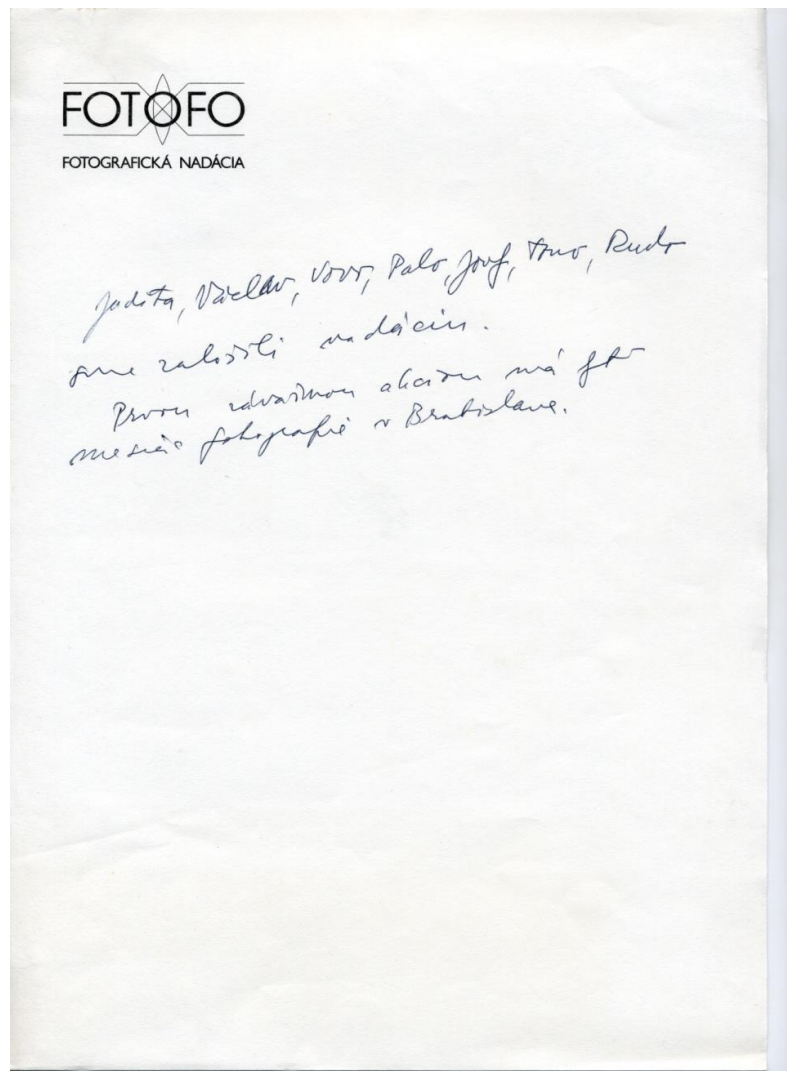 FOTOFO
FOTOGRAFICKÁ NADÁCIA
Judita, Václav, Vovo, Palo, Jozef, Tono, Rudo
sme založili nadáciu.
Prvou závažnou akciou má
mesiac fotografie v Bratislave.